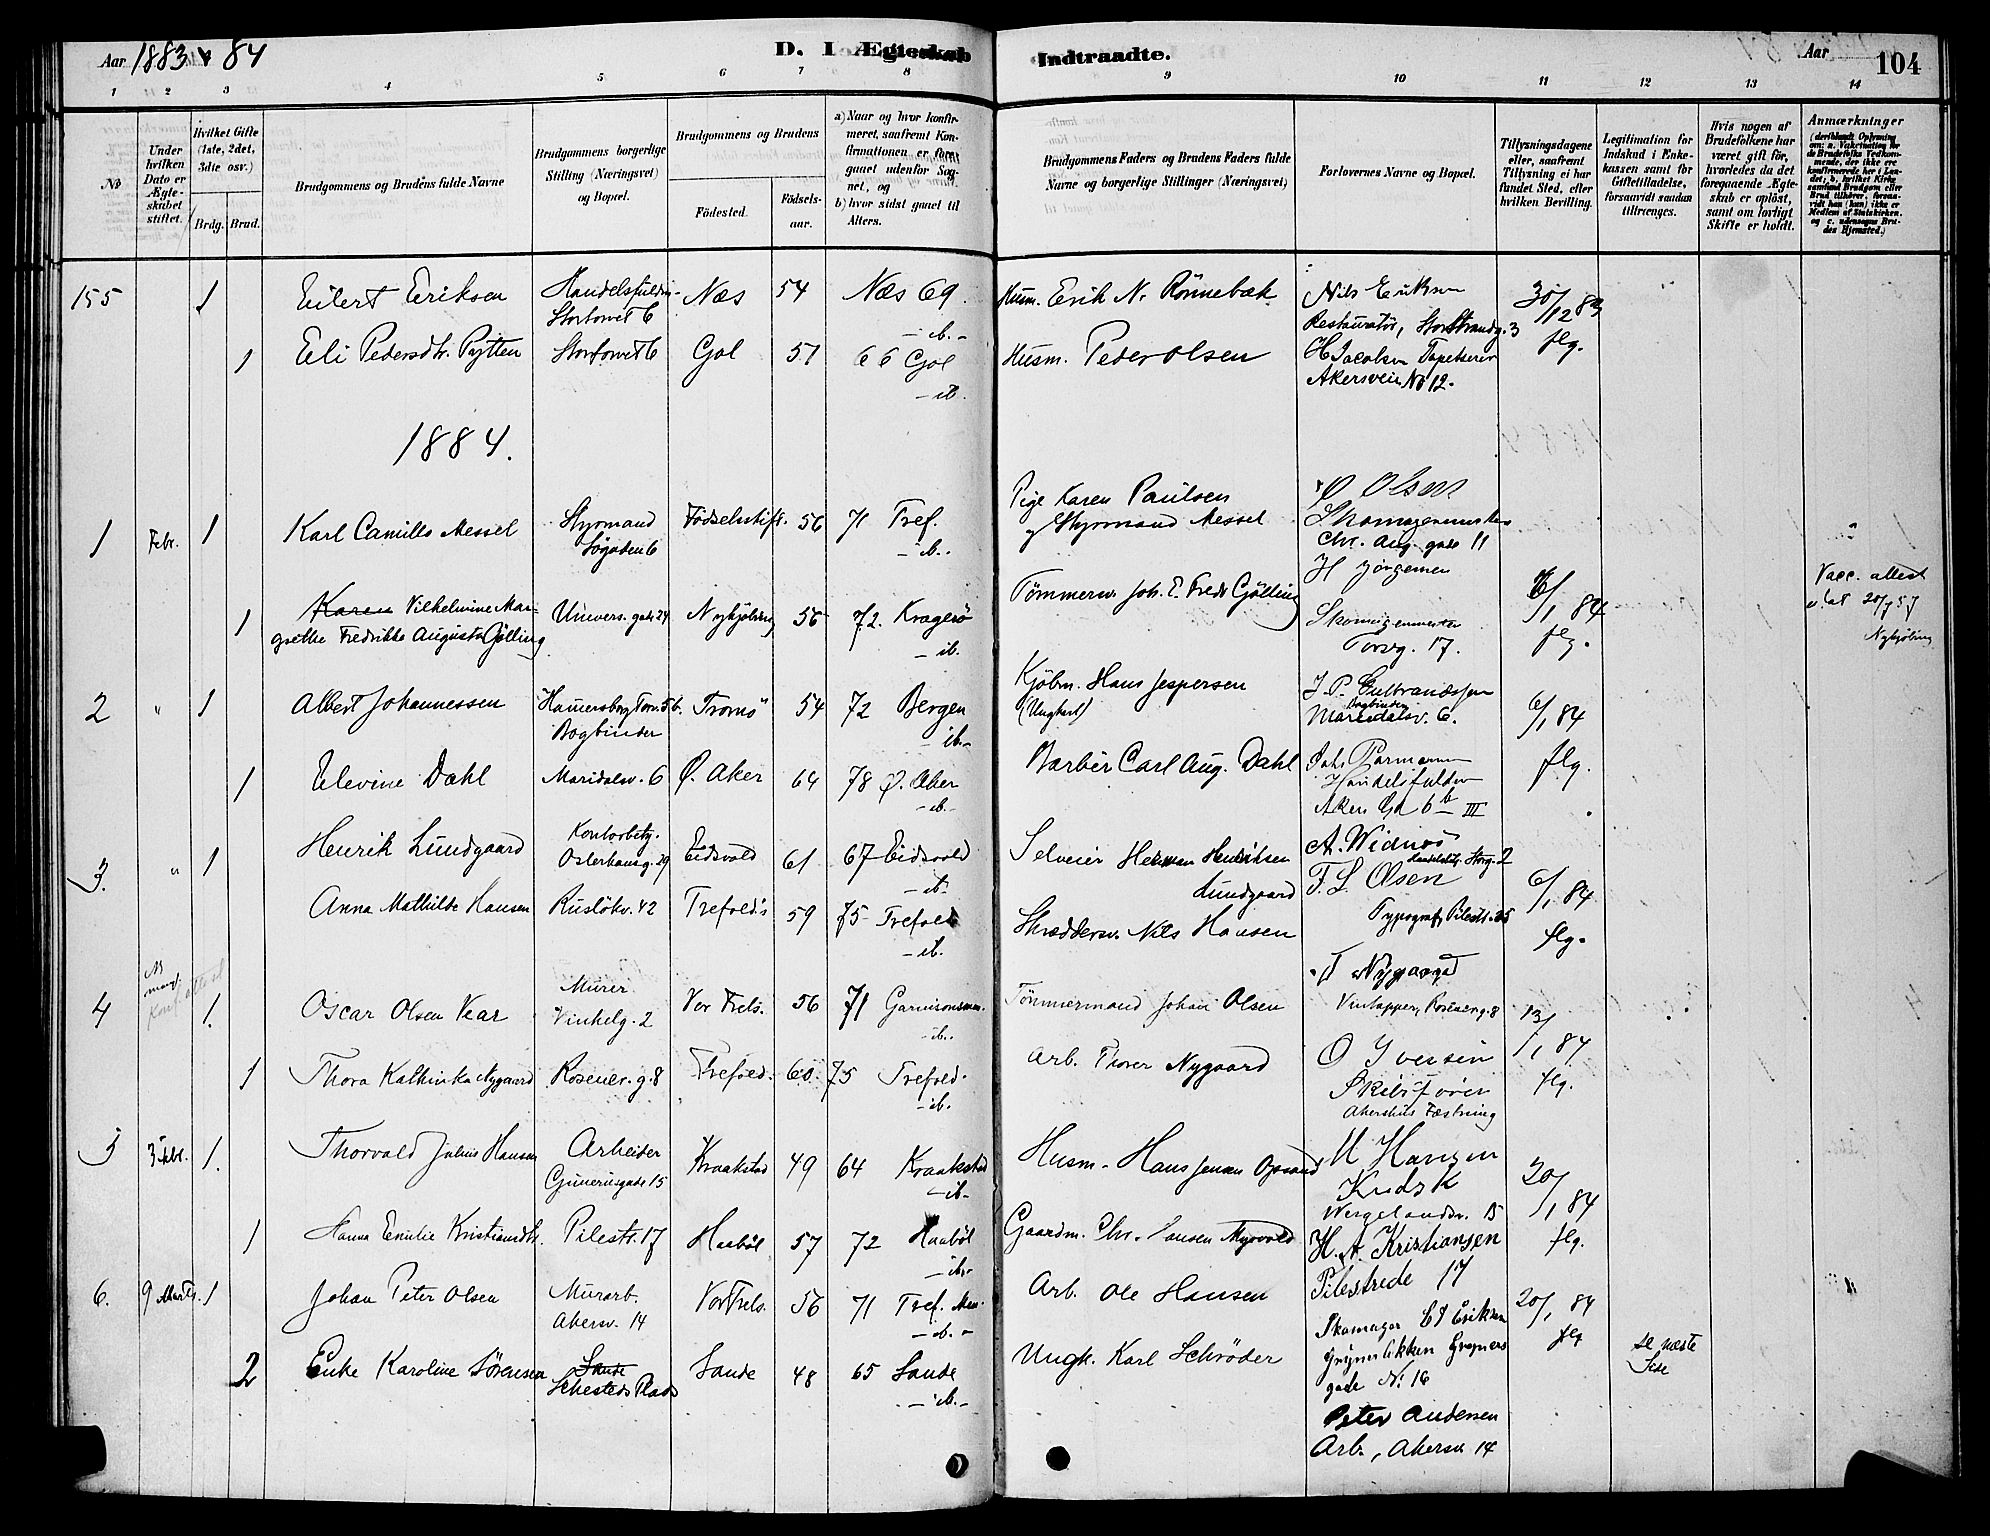 Aar 1883 & 84
D. I Ægteskab Indtraadte.
Aar 104
1 2 3 4 5 6 7 8 9 10 11 12 13 14
No
Under hvilken Dato er Ægteskabet stiftet.
Hvilket Gifte (1ste, 2det, 3die osv.)
Brdg. Brud.
Brudgommens og Brudens fulde Navne
Brudgommens borgerlige Stilling (Næringsvei) og Bopæl.
Brudgommens og Brudens
Födested. Födsels-aar.
a) Naar og hvor konfirmeret, saafremt Konfirmationen er foregaaet udenfor Sognet, og
b) hvor sidst gaaet til Alters.
Brudgommens Faders og Brudens Faders fulde Navne og borgerlige Stillinger (Næringsvei)
Forlovernes Navne og Bopæl.
Tillysningsdagene eller, saafremt Tillysning ei har fundet Sted, efter hvilken Bevilling.
Legitimation for Indskud i Enkekassen samt for Giftetilladelse, forsaavidt saadan tiltrænges.
Hvis nogen af Brudefolkene har været gift för, hvorledes da det foregaaende Ægteskab er oplöst, samt om lovligt Skifte er holdt.
Anmærkninger
155 1 Eilert Eriksen
Stortorvet 6
Næs 54 Næs 69
- ib. -
Husm. Erik N. Rönnebæk
Nils Eriksen
Restauratör, Storstrandg. 3
30/12 83
flg.
1 Eli Pedersdtr. Pytten
Stortorvet 6
Gol 57 66 Gol
- ib.
Husm. Peder Olsen
H Jacobsen Tapetserer
Akersveien No 12.
1884.
1 Febr. 1 Karl Camillo Messel
Styrmand
Søgaden 6
Födselsstift. 56 71 Tref.
- ib. -
Pige Karen Paulsen
og Styrmand Messel
O Olsen
Skomagermester
Chr. Aug. gade 11
H Jörgensen
1 Karen Vilhelmine Mar-
grethe Fredrikke Augusta Gjölling
Univers. gade 24
Nykjöbing 56 72. Kragerö
- ib.
Tömmerm. Joh. E. Fredr Gjölling
Skomagermester
Torvg. 17.
6/1 84
flg.
Vacc. attest
20/7 57
Nykjöbing
2 " 1 Albert Johannessen
Hamersborg Torv 5 b.
Bogbinder
Tromsö 54 72 Bergen
- ib. -
Kjöbm. Hans Jespersen
(Ungkarl)
J. P. Gulbrandssen
Bogbinder
Maridalsv. 6.
6/1 84
flg.
1 Elevine Dahl
Maridalsv. 6
Ø. Aker 64 78 Ø. Aker
- ib. -
Barber Carl Aug. Dahl
Aker Gd 6 b III
3. " 1 Henrik Lundgaard
Kontorbetj.
Osterhausg. 29
Eidsvold 61 67 Eidsvold
- ib.
Selveier Herman Henriksen
Lundgaard
A. Widnös
Storg. 2
F. L. Olsen
Typograf, Pilestr. 35
6/1 84
flg.
Anna Mathilde Hansen
Ruslökv. 42
Trefold's 59 75 Trefold
- ib.
Skræddersv. Nils Hansen
4 1. Oscar Olsen Vear
Murer
Vinkelg. 2
Vor Frels. 56 71 Garnisonsmen.
- ib. -
Tömmermand Johan Olsen
T Nygaard
Vintapper, Rosenerg. 8
13/1 84
flg.
1 Thora Kathinka Nygaard
Rosener. g. 8
Trefold. 60. 75 Trefold.
- ib.
Arb. Thorer Nygaard
O Iversen
Akershus Fæstning
5 3 Febr. 1. Thorvald Julius Hansen
Arbeider
Gunerusgade 15
Kraakstad 49 64 Kraakstad
- ib. -
Husm. Hans Jensen Opsand
M Hansen
Kudsk
Wergelandsv. 15
20/1 84
flg.
1 Hanna Emilie Kristiansdtr.
Pilestr. 17
Haaböl 57 72 Haaböl
- ib. -
Gaardm. Chr. Hansen Myrvold
H. A. Kristiansen
Pilestrede 17
6. 9 Marts. 1 Johan Peter Olsen
Murarb.
Akersv. 14
Vor Frels. 56 71 Tref. Men.
- ib. -
Arb. Ole Hansen
Skomager E Eriksen
Grüner Lökken Grüners
gade No 16
20/1 84
flg
2 Enke Karoline Sörensen
Sande
Sehesteds Plads
Sande 48 65 Sande
- ib. -
Ungk. Karl Schröder
Peter Andersen
Arb., Akersv. 14
se næste
Side